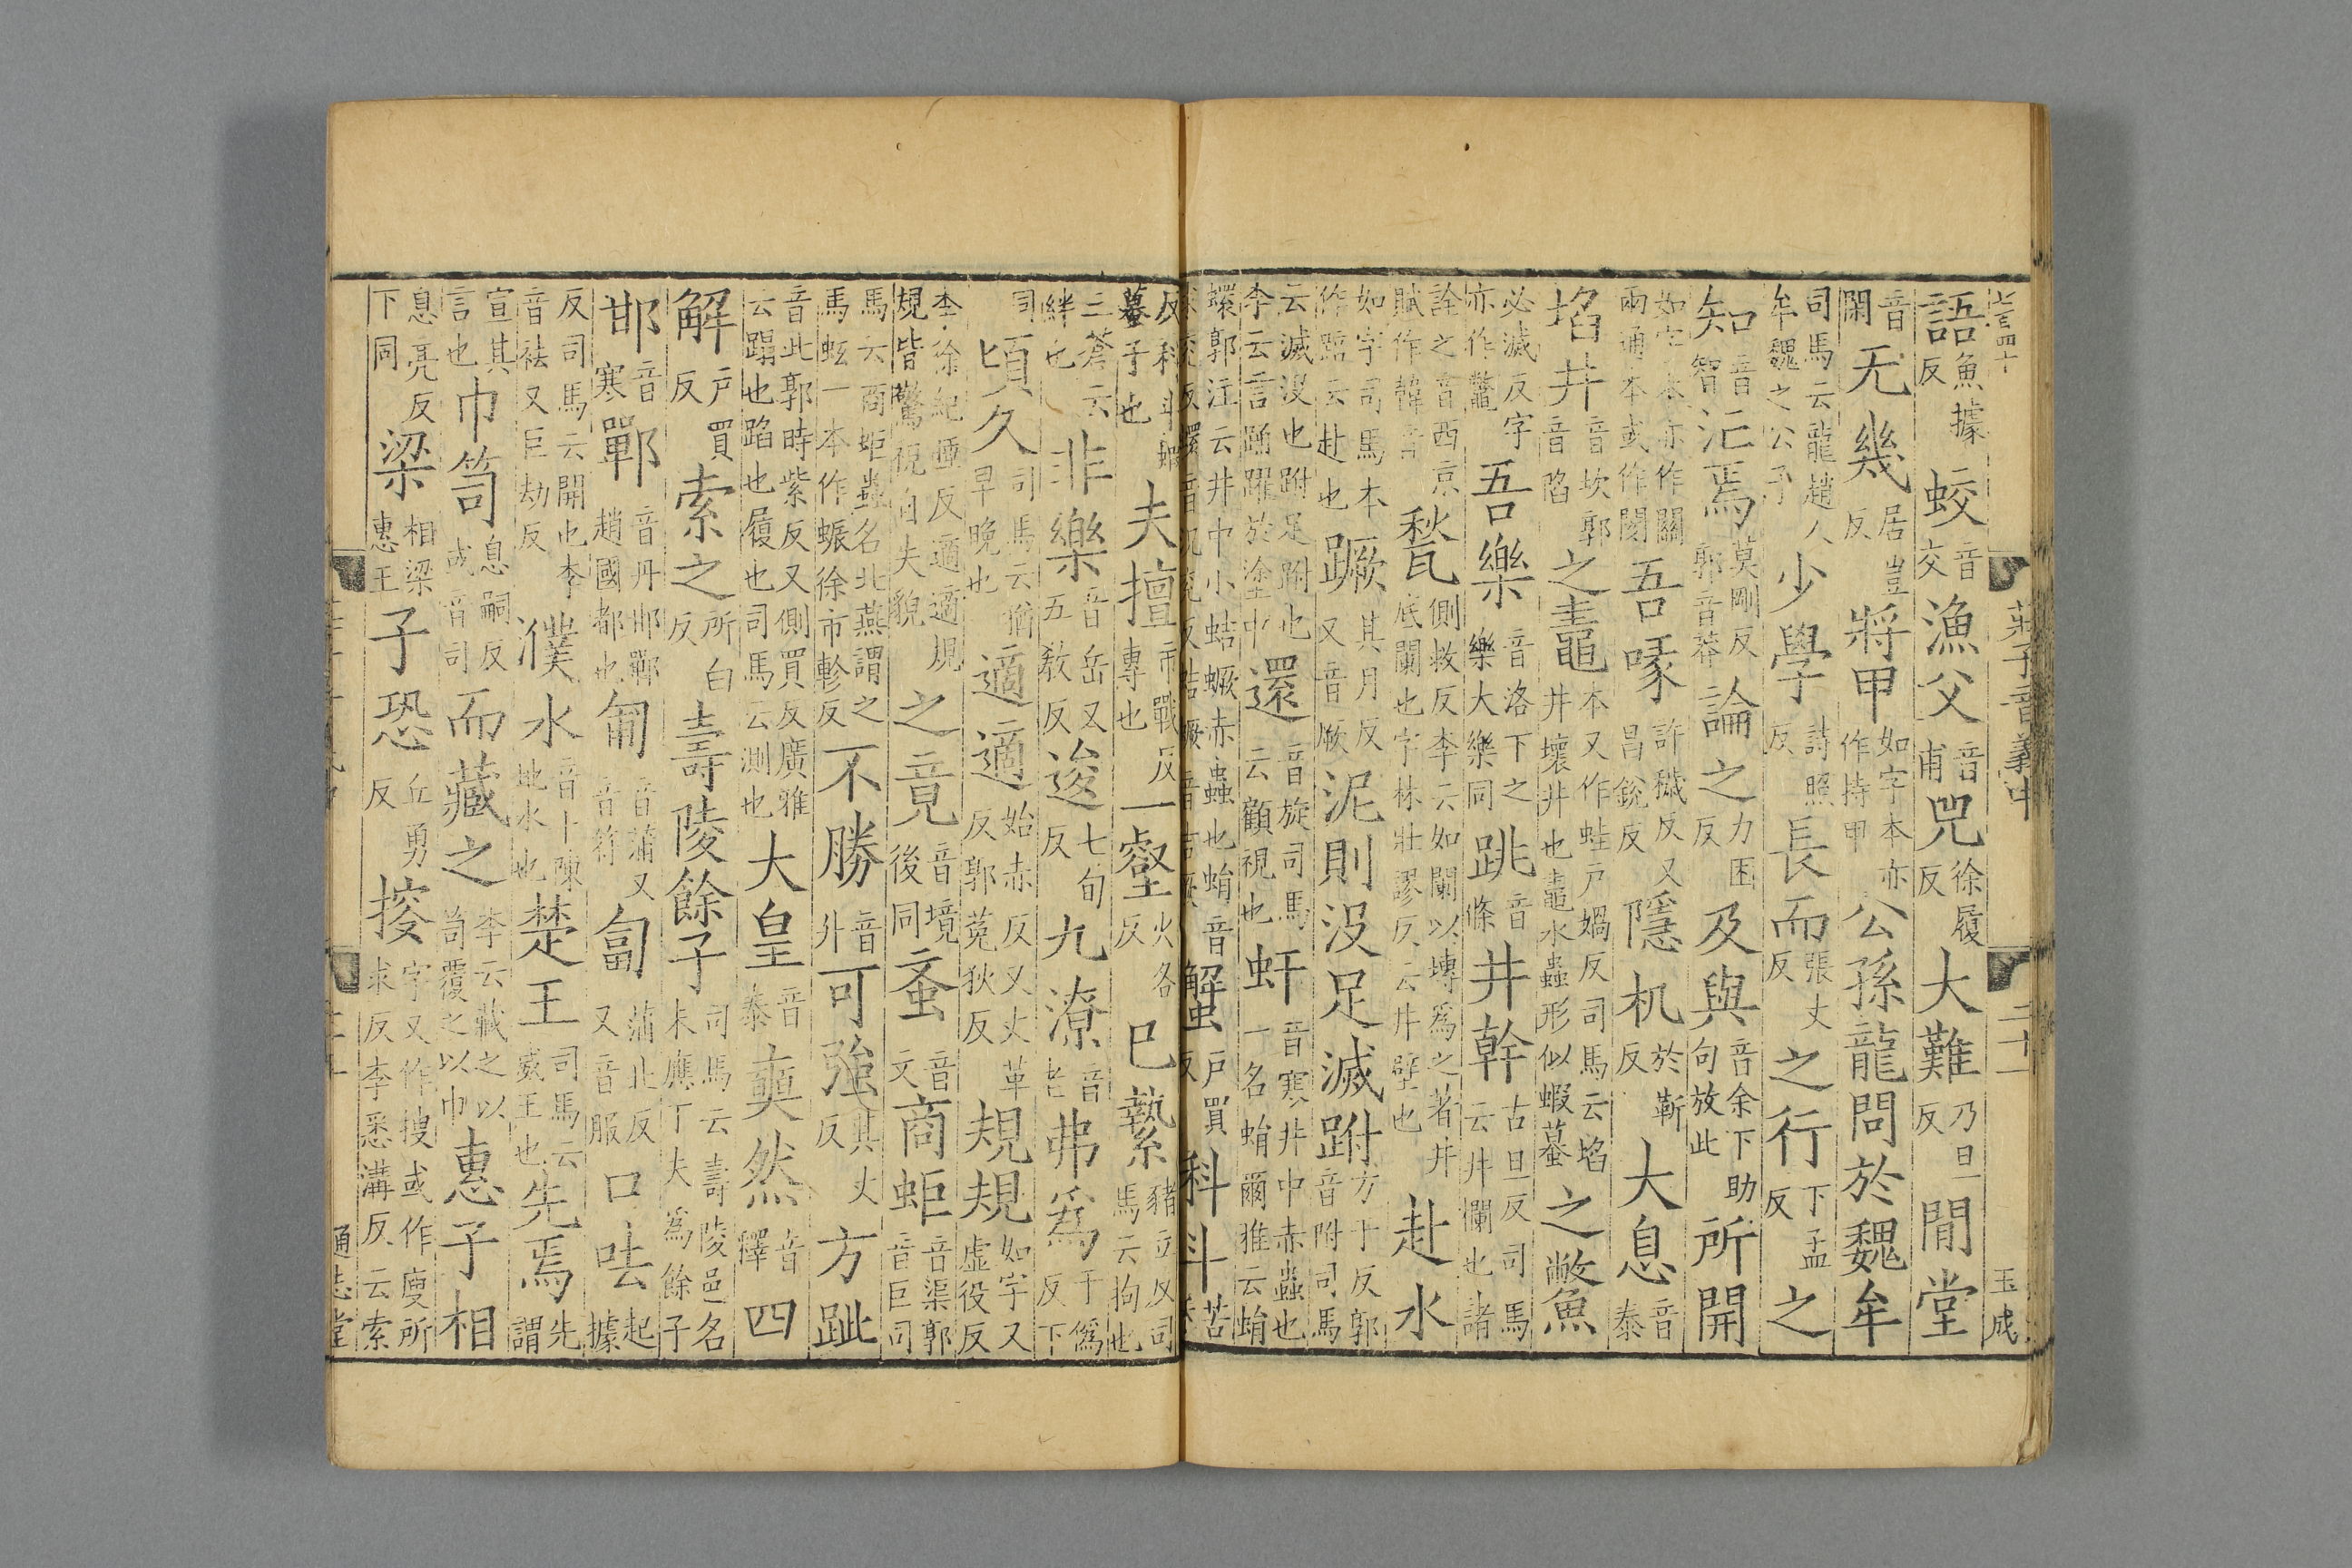 莊子音義中 二十一 玉成
語魚據反蛟音交漁父音甫兕徐履反大難乃旦反閒堂
音閑无幾居豈反將甲如字本亦作持甲公孫龍問於魏牟
司馬云龍趙人牟魏之公子少學詩照反長而張丈反之行下孟反之
知音智汒焉莫剛反郭音莽論之力困反及與音余下助句放此所開
如字本亦作關兩通本或作閡吾喙許穢反又昌銳反隱机於靳反大息音泰
埳井音坎郭音陷之鼃本又作蛙戶媧反司馬云埳井壞井也鼃水蟲形似蝦蟇之𩼁
必滅反字亦作鼈吾樂音洛下之樂大樂同跳音條井幹古旦反司馬云井欄也諸
詮之音西京賦作韓音甃側救反李云如闌以塼爲之著井底闌也字林壯謬反云井壁也赴水
如字司馬本作踣云赴也蹶其月反又音厥泥則沒足滅跗方于反郭音附司馬
云滅沒也跗足跗也李云言踊躍於塗中還音旋司馬云顧視也虷音寒井中赤蟲也一名蜎爾雅云蜎
蠉郭注云井中小蛣蟩赤蟲也蜎音求兖反蠉音況兖反蛣蟩音吉厥蟹戶買反科斗苦禾
反科斗蝦蟇子也夫擅市戰反專也一壑火各反巳縶豬立反司馬云拘也
三蒼云絆也非樂音岳又五教反逡七旬反九潦音老弗爲于僞反下
同頃久司馬云猶早晚也適適始赤反又丈革反郭菟狄反規規如字又虛役反
李徐紀睡反適適規規皆驚視自失貌之竟音境後同蚤音文商蚷音渠郭音巨司
馬云商蚷蟲名北燕謂之馬蚿一本作蜄徐市軫反不勝音升可強其丈反方跐
音此郭時紫反又側買反廣雅云蹋也蹈也履也司馬云測也大皇音泰奭然音釋四
解戶買反索之所白反壽陵餘子司馬云壽陵邑名未應丁夫爲餘子
邯音寒鄲音丹邯鄲趙國都也匍音蒲又音符匐蒲北反又音服口呿起據
反司馬云開也李音袪又巨劫反濮水音卜陳地水也楚王司馬云威王也先焉先謂
宣其言也巾笥息嗣反或音司而藏之李云藏之以笥覆之以巾惠子相
息亮反下同梁相梁惠王子恐丘勇反搜字又作搜或作廋所求反李悉溝反云索
通志堂